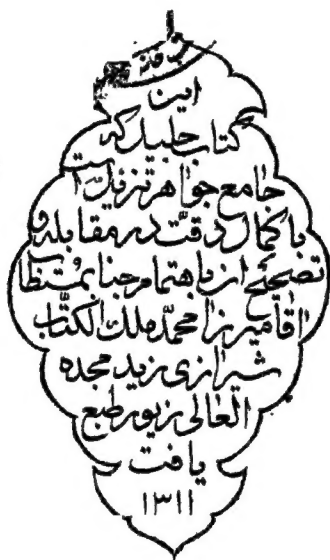 این
کتاب جلید که
جامع جواهر تنزیل است
باکمال دقت در مقابله و
تصحیح از باهتمام جناب مستطاب
اقا میرزا محمد ملک الکتاب
شیرازی زید مجده
العالی زیور طبع
یافت
۱۳۱۱